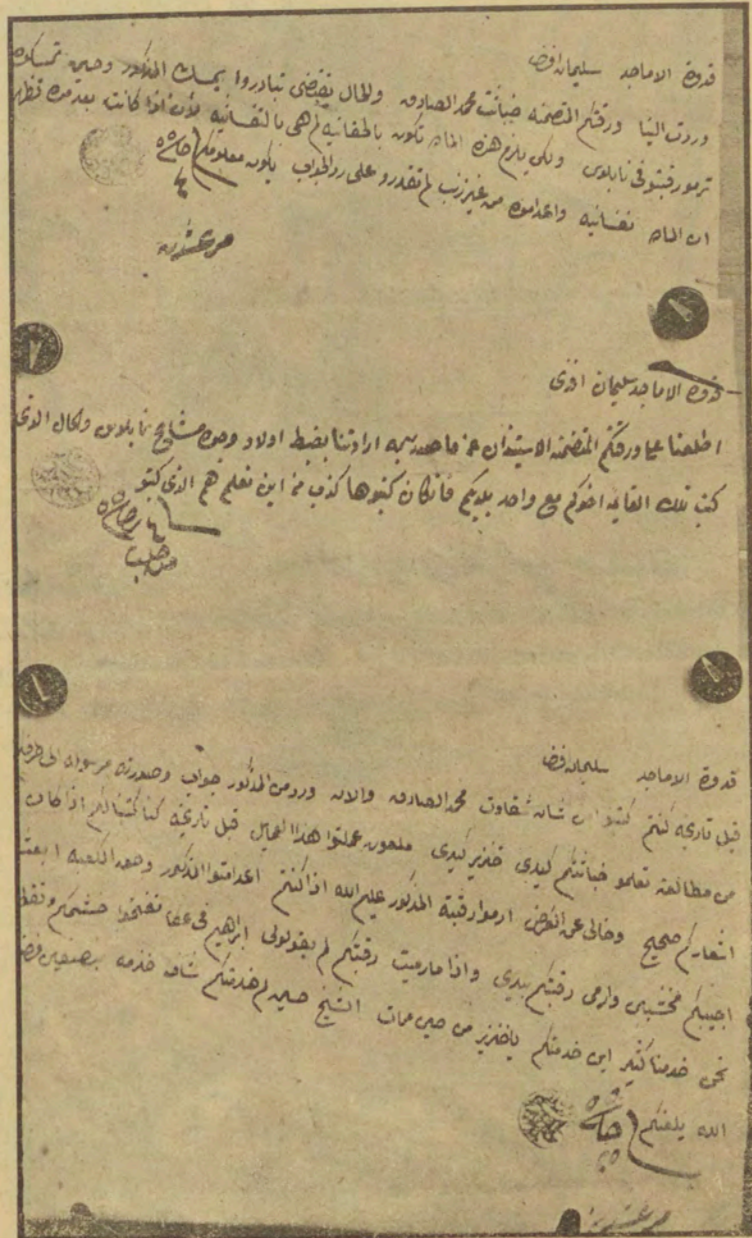 قدوة الاماجد سليمان افندي
وردت الينا ورقتكم المتضمنه خيانت محمد الصادق والحال يقتضي تبادروا بمسك المذكور وحين تمسكوه
ترمو رقبتو في نابلوس ولكن يلزم هذه الماده تكون بالحقانيه لم هي بالنفسانيه لأن اذا كانت بعد مده تظهر
ان الماده نفسانيه واعدامه من غير ذنب لم تقدرو على رد الجواب يكون معلومكم
قدوة الاماجد سليمان افندي
اطلعنا على ورقتكم المتضمنه الاستيذان عن ما صدر به ارادتنا بضبط اولاد وجوه مشايخ نابلوس والحال الذي
كتب تلك القايمه اخوكم مع واحد بلديكم فانكان كتبوها كذب من اين نعلم هم الذي كتبو
من حلب
قدوة الاماجد سليمان افندي
قبل تاريخه كنتم كتبتو لنا من شان شقاوت محمد الصادق والان ورد من المذكور جواب وصورته مرسوله الى طرفكم
من مطالعته تعلمو خيانتكم كيدي خنزير كيدي ملعون عملتوا هذا العمايل قبل تاريخه كنا كتبنا لكم اذا كان
اشعاركم صحيح وخالي عن الغرض ارموا رقبة المذكور عليم الله اذا كنتم اعدمتوا المذكور وحق الكعبه ابعث
اجيبكم مخشبين وارمي رقبتكم بيدي واذا ما رميت رقبتكم لم يقولولي ابراهيم في عكا نفختوا خشمكم وتقولوا
نحن خدمنا كثير اين خدمتكم ياخنزير من حين مات الشيخ حسين لم خدمتكم شاف خدمه
الله يلعنكم